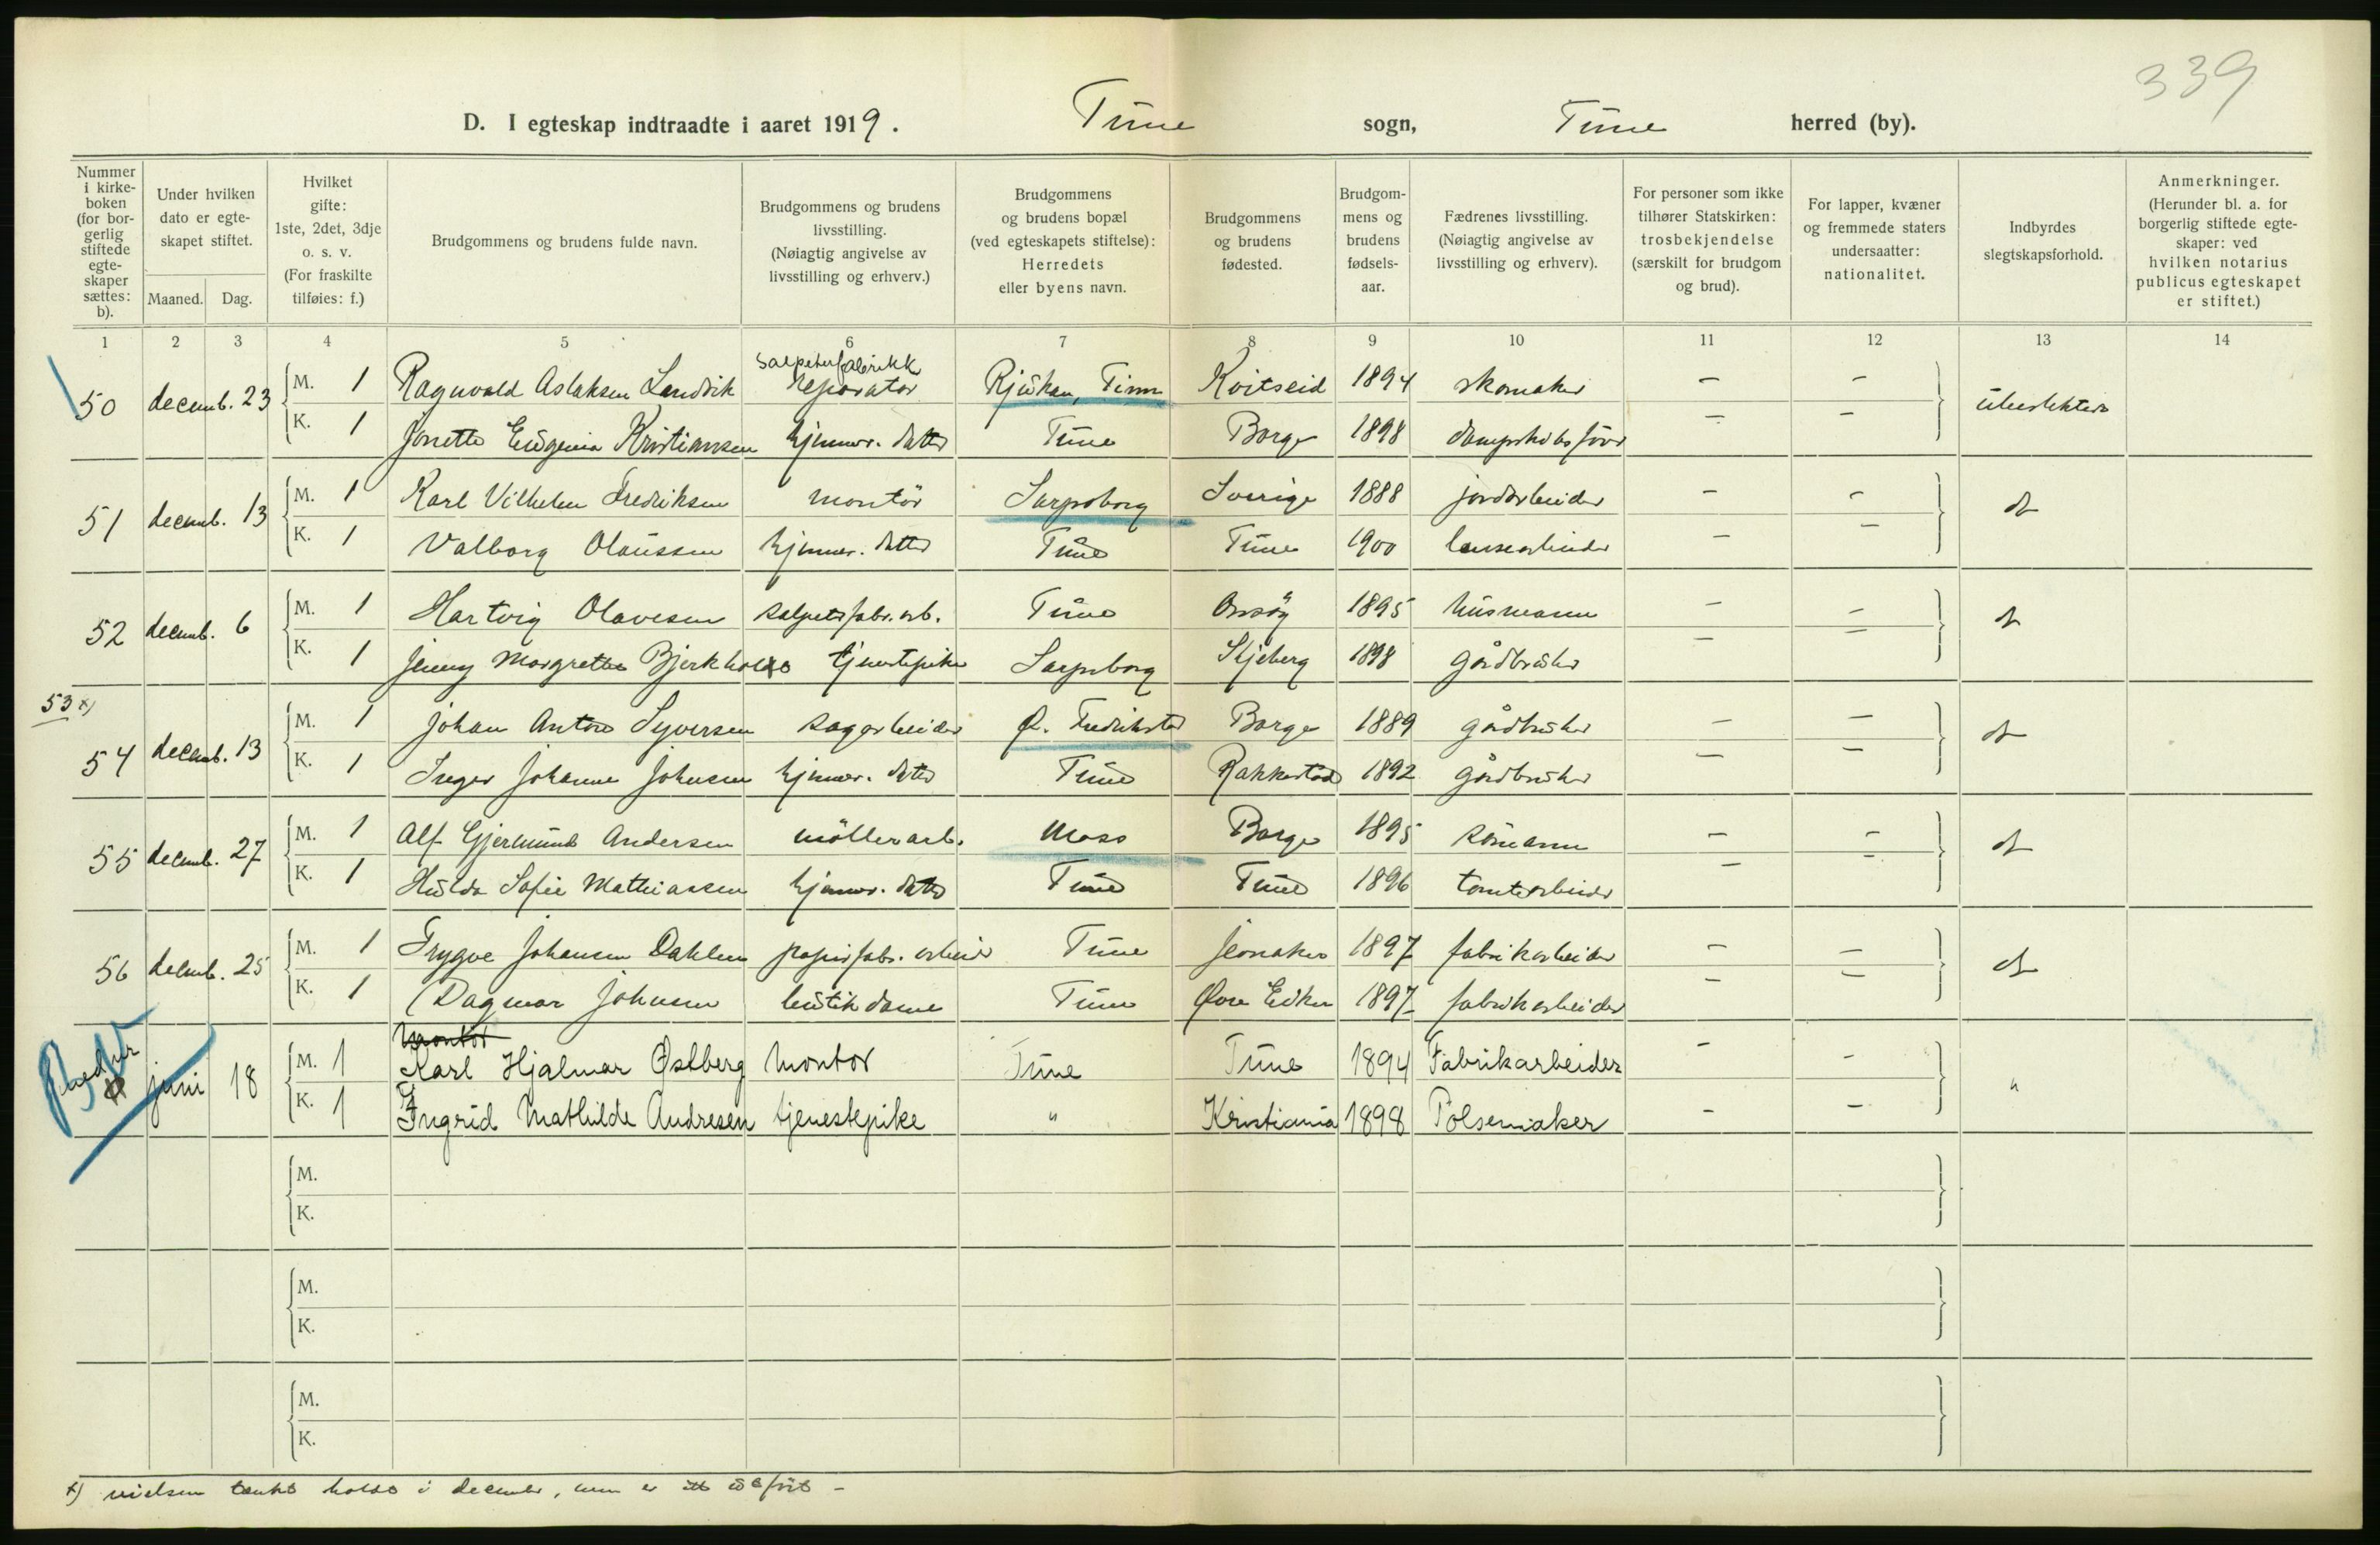 339
D. I egteskap indtraadte i aaret 1919. Tune sogn, Tune herred (by).
Nummer i kirkeboken (for borgerlig stiftede egteskaper sættes: b).
Under hvilken dato er egteskapet stiftet.
Maaned. Dag.
Hvilket gifte: 1ste, 2det, 3dje o. s. v. (For fraskilte tilføies: f.)
Brudgommens og brudens fulde navn.
Brudgommens og brudens livsstilling. (Nøiagtig angivelse av livsstilling og erhverv.)
Brudgommens og brudens bopæl (ved egteskapets stiftelse): Herredets eller byens navn.
Brudgommens og brudens fødested.
Brudgommens og brudens fødselsaar.
Fædrenes livsstilling. (Nøiagtig angivelse av livsstilling og erhverv).
For personer som ikke tilhører Statskirken: trosbekjendelse (særskilt for brudgom og brud).
For lapper, kvæner og fremmede staters undersaatter: nationalitet.
Indbyrdes slegtskapsforhold.
Anmerkninger. (Herunder bl. a. for borgerlig stiftede egteskaper: ved hvilken notarius publicus egteskapet er stiftet.)
1 2 3 4 5 6 7 8 9 10 11 12 13 14
50 decemb. 23 M. 1 Ragnvald Aslaksen Landvik salpeterfabrikk reparatør Rjukan, Tinn Kvitseid 1894 skomaker — — ubeslektede
K. 1 Jonette Eugenia Kristiansen hjemmev. datter Tune Borge 1898 dampskibsfører — —
51 decemb. 13 M. 1 Karl Vilhelm Fredriksen montør Sarpsborg Sverige 1888 jordarbeider — — do
K. 1 Valborg Olaussen hjemmev. datter Tune Tune 1900 lensearbeider — —
52 decemb. 6 M. 1 Hartvig Olavesen salpeterfabr. arb. Tune Onsøy 1895 husmann — — do
K. 1 Jenny Margrethe Bjerkholt tjenestepike Sarpsborg Skjeberg 1898 gårdbruker — —
53 x)
54 decemb. 13 M. 1 Johan Anton Syversen sagarbeider Ø. Fredrikstad Borge 1889 gårdbruker — — do
K. 1 Inger Johanne Johnsen hjemmev. datter Tune Rakkestad 1892 gårdbruker — —
55 decemb. 27 M. 1 Alf Gjermund Andersen møllerarb. Moss Borge 1895 sømann — — do
K. 1 Hulda Sofie Mathiassen hjemmev. datter Tune Tune 1896 tomtearbeider — —
56 decemb. 25 M. 1 Trygve Johansen Dahlen papirfabr. arbeid Tune Jevnaker 1897 fabrikarbeider — — do
K. 1 Dagmar Johnsen butikdame Tune Øvre Eiker 1897 fabrikarbeider — —
juni 18 M. 1 Montør Karl Hjalmar Østberg Montør Tune Tune 1894 Fabrikarbeider — — "
K. 1 Ingrid Mathilde Andresen tjenestepike " Kristiania 1898 Pølsemaker — —
M.
K.
M.
K.
M.
K.
x) vielsen tænkt holdt i december, men er ikke utført —